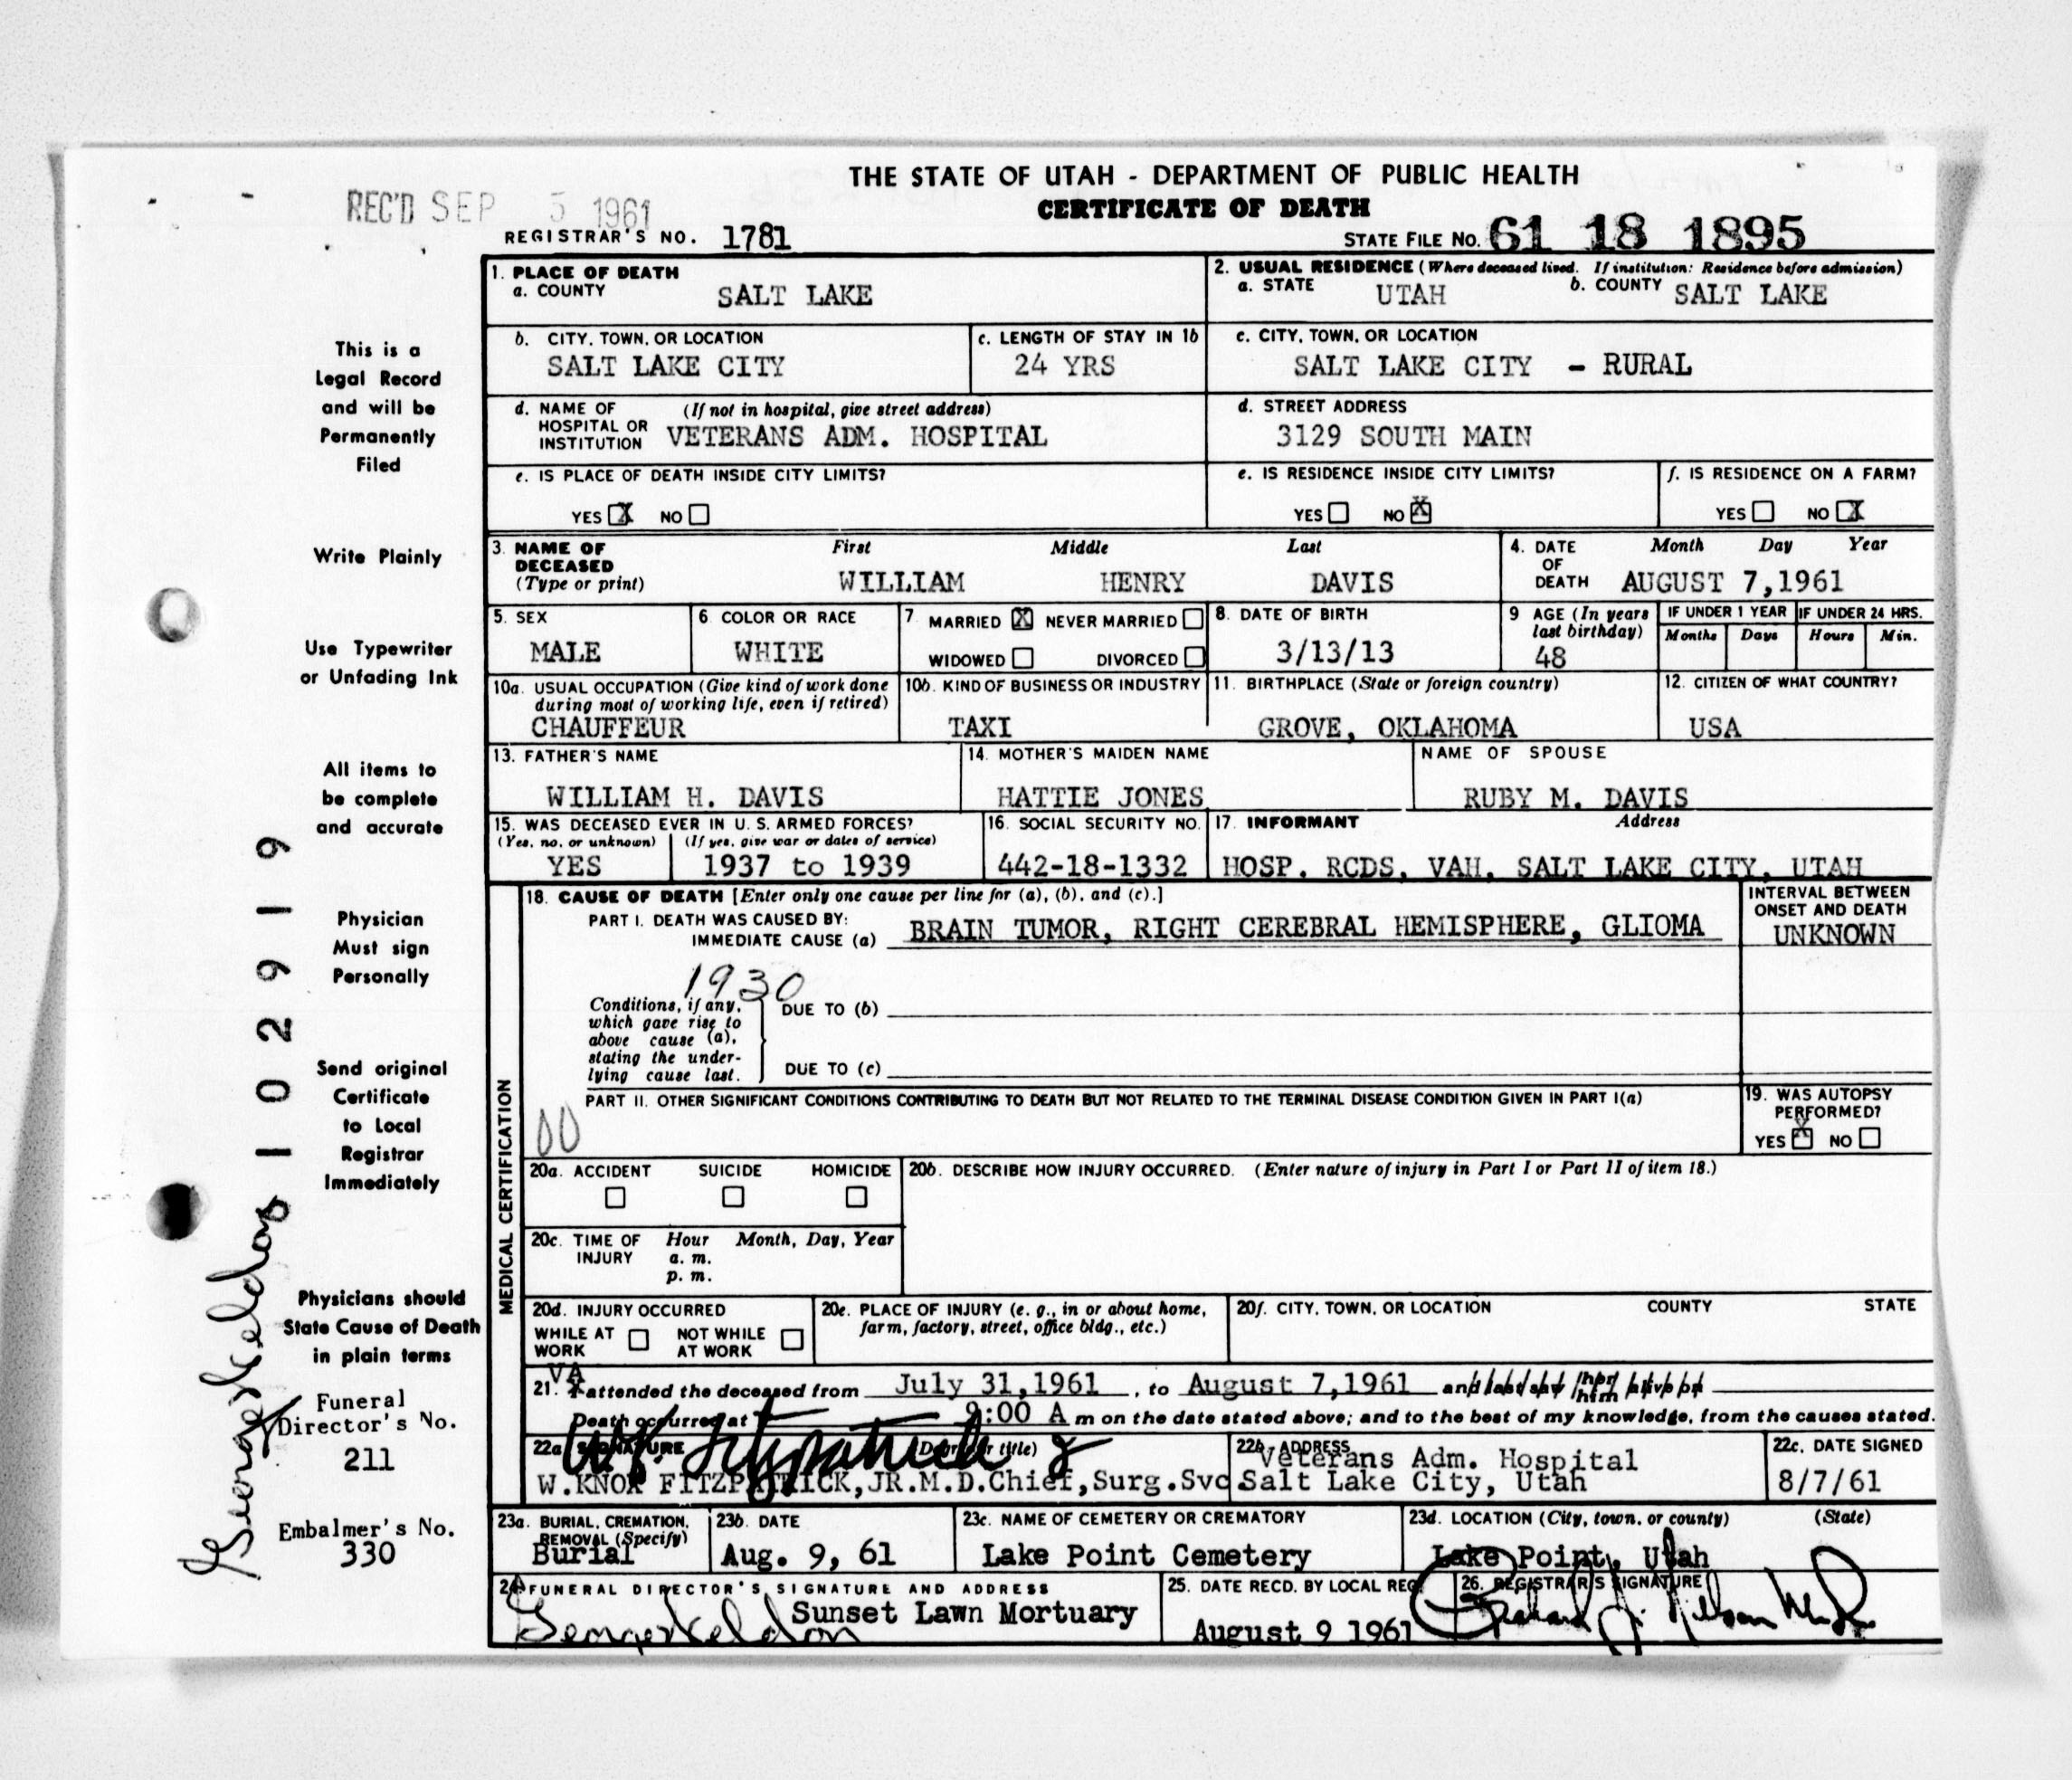 THE STATE OF UTAH - DEPARTMENT OF PUBLIC HEALTH
CERTIFICATE OF DEATH
REC'D SEP 5 1961
REGISTRAR'S NO. 1781
STATE FILE NO. 61 18 1895
1. PLACE OF DEATH
a. COUNTY SALT LAKE
2. USUAL RESIDENCE (Where deceased lived. If institution: Residence before admission)
a. STATE UTAH b. COUNTY SALT LAKE
b. CITY, TOWN, OR LOCATION
SALT LAKE CITY
c. LENGTH OF STAY IN 1b
24 YRS
c. CITY, TOWN, OR LOCATION
SALT LAKE CITY - RURAL
d. NAME OF HOSPITAL OR INSTITUTION (If not in hospital, give street address)
VETERANS ADM. HOSPITAL
d. STREET ADDRESS
3129 SOUTH MAIN
e. IS PLACE OF DEATH INSIDE CITY LIMITS?
YES X NO
e. IS RESIDENCE INSIDE CITY LIMITS?
YES NO X
f. IS RESIDENCE ON A FARM?
YES NO X
3. NAME OF DECEASED (Type or print)
First Middle Last
WILLIAM HENRY DAVIS
4. DATE OF DEATH
Month Day Year
AUGUST 7,1961
5. SEX
MALE
6. COLOR OR RACE
WHITE
7. MARRIED X NEVER MARRIED
WIDOWED DIVORCED
8. DATE OF BIRTH
3/13/13
9 AGE (In years last birthday)
48
IF UNDER 1 YEAR
Months Days
IF UNDER 24 HRS.
Hours Min.
10a. USUAL OCCUPATION (Give kind of work done during most of working life, even if retired)
CHAUFFEUR
10b. KIND OF BUSINESS OR INDUSTRY
TAXI
11. BIRTHPLACE (State or foreign country)
GROVE, OKLAHOMA
12. CITIZEN OF WHAT COUNTRY?
USA
13. FATHER'S NAME
WILLIAM H. DAVIS
14. MOTHER'S MAIDEN NAME
HATTIE JONES
NAME OF SPOUSE
RUBY M. DAVIS
15. WAS DECEASED EVER IN U.S. ARMED FORCES?
(Yes, no, or unknown) (If yes, give war or dates of service)
YES 1937 to 1939
16. SOCIAL SECURITY NO.
442-18-1332
17. INFORMANT Address
HOSP. RCDS. VAH. SALT LAKE CITY, UTAH
MEDICAL CERTIFICATION
18. CAUSE OF DEATH [Enter only one cause per line for (a), (b), and (c).]
PART I. DEATH WAS CAUSED BY:
IMMEDIATE CAUSE (a) BRAIN TUMOR, RIGHT CEREBRAL HEMISPHERE, GLIOMA
INTERVAL BETWEEN ONSET AND DEATH
UNKNOWN
1930
Conditions, if any, which gave rise to above cause (a), stating the underlying cause last.
DUE TO (b)
DUE TO (c)
PART II. OTHER SIGNIFICANT CONDITIONS CONTRIBUTING TO DEATH BUT NOT RELATED TO THE TERMINAL DISEASE CONDITION GIVEN IN PART I(a)
00
19. WAS AUTOPSY PERFORMED?
YES X NO
20a. ACCIDENT SUICIDE HOMICIDE
20b. DESCRIBE HOW INJURY OCCURRED. (Enter nature of injury in Part I or Part II of item 18.)
20c. TIME OF INJURY Hour Month, Day, Year
a. m.
p. m.
20d. INJURY OCCURRED
WHILE AT WORK NOT WHILE AT WORK
20e. PLACE OF INJURY (e. g., in or about home, farm, factory, street, office bldg., etc.)
20f. CITY, TOWN, OR LOCATION COUNTY STATE
VA
21. I attended the deceased from July 31,1961, to August 7,1961 and last saw her him alive on
Death occurred at 9:00 A m on the date stated above; and to the best of my knowledge, from the causes stated.
22a. SIGNATURE (Degree or title)
W.K. Fitzpatrick Jr
W.KNOX FITZPATRICK,JR.M.D.Chief,Surg.Svc
22b. ADDRESS
Veterans Adm. Hospital
Salt Lake City, Utah
22c. DATE SIGNED
8/7/61
23a. BURIAL, CREMATION, REMOVAL (Specify)
Burial
23b. DATE
Aug. 9, 61
23c. NAME OF CEMETERY OR CREMATORY
Lake Point Cemetery
23d. LOCATION (City, town, or county) (State)
Lake Point, Utah
24. FUNERAL DIRECTOR'S SIGNATURE AND ADDRESS
Sunset Lawn Mortuary
25. DATE RECD. BY LOCAL REG.
August 9 1961
26. REGISTRAR'S SIGNATURE
This is a
Legal Record
and will be
Permanently
Filed
Write Plainly
Use Typewriter
or Unfading Ink
All items to
be complete
and accurate
Physician
Must sign
Personally
Send original
Certificate
to Local
Registrar
Immediately
Physicians should
State Cause of Death
in plain terms
Funeral
Director's No.
211
Embalmer's No.
330
1029 19